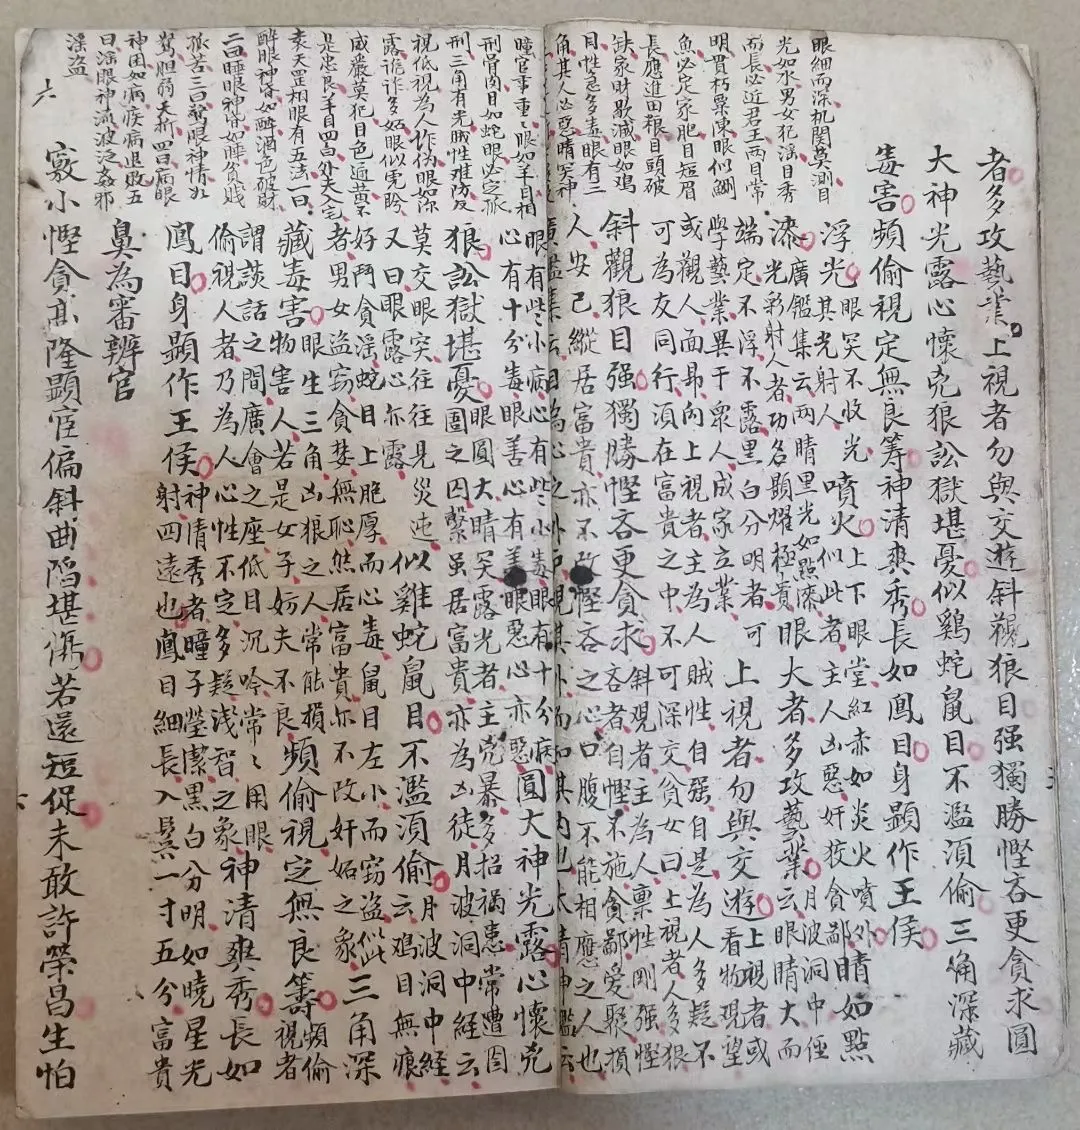 眼細而深机関莫測目
光如水男女犯淫目秀
而長必近君王两目常
明貫朽粟陳眼似鯽
魚必定家肥目短眉
長應進田粮目頭破
缺家財歇減眼如鷄
目性急多毒眼有二
角其人必惡睛突神
者多攻藝業上視者勿與交遊斜觀狼目强獨勝慳吝更貪求圓
大神光露心懷兇狼訟獄堪憂似鷄蛇鼠目不濫湏偷三角深藏
毒害頻偷視定無良筹神清爽秀長如鳳目身顕作王侯
浮光眼突不收光其光射人噴火上下眼堂紅赤如炎火噴外似此者主人凶惡奸狡貪鄙睛如點
漆光彩射人者功名顯耀極貴廣鑑集云两睛里光如點漆眼大者多攻藝業月波洞中經云眼睛大而
端定不浮不露黑白分明者可學藝業異于衆人成家立業上視者勿與交遊上視者或看物現望
或觀人面昻向上視者主為人賊性自强自是為人多疑不可為友同行湏在富貴之中不可深交貧女曰上視者人多狠
斜觀狼目强獨勝慳吝更貪求斜視者主為人禀性剛强慳吝者自慳不施貪鄙愛聚損
人安己縱居富貴亦不改慳吝之心口腹不能相應之人也
瞳官事重〻眼如羊目相
刑骨肉目如蛇眼必定孤
刑三角有光賊性难防反
視低視為人作偽眼如深
露詭诈多奸眼似虎盼
威嚴莫犯目色通黄不
是忠良羊目四白外夫入宅
袁天罡相眼有五法一曰
醉眼神昏如醉酒色破財
二曰睡眼神昏如睡貧賎
孤苦三曰驚眼神情如
驚胆弱夭折四曰病眼
神困如病疾病退敗五
曰淫眼神流波泛姦邪
淫盗
眼有些小病心有些小毒眼有十分病心有十分毒眼善心有善眼惡心亦惡圓大神光露心懷兇
狼訟獄堪憂眼圓大睛突露光者主兇暴多招禍患常遭囹圄之囚繫虽居富貴亦為凶徒月波洞中経云
莫交眼突往往見災迍又曰眼露心亦露似雞蛇鼠目不濫湏偷月波洞中經云鷄目無痕
好鬥貪滛蛇目上胞厚而心毒鼠目左小而窃盗似此者男女盜窃貪婪無恥然居富貴亦不改奸姤之象三角深
藏毒害眼生三角凶狼之人常能損物害人若是女子妨夫不良頻偷視定無良籌頻偷視者
謂談話之間廣會之座低目沉吟常〻用眼偷視人者乃為人心性不定多疑浅智之象神清爽秀長如
鳳目身顕作王侯神情秀者瞳子瑩潔黑白分明如曉星光射四遠也鳳目細長入鬂一寸五分富貴
鼻為審辨官
竅小慳貪髙隆顕宦偏斜曲陷堪傷若還短促未敢許榮昌生怕
六